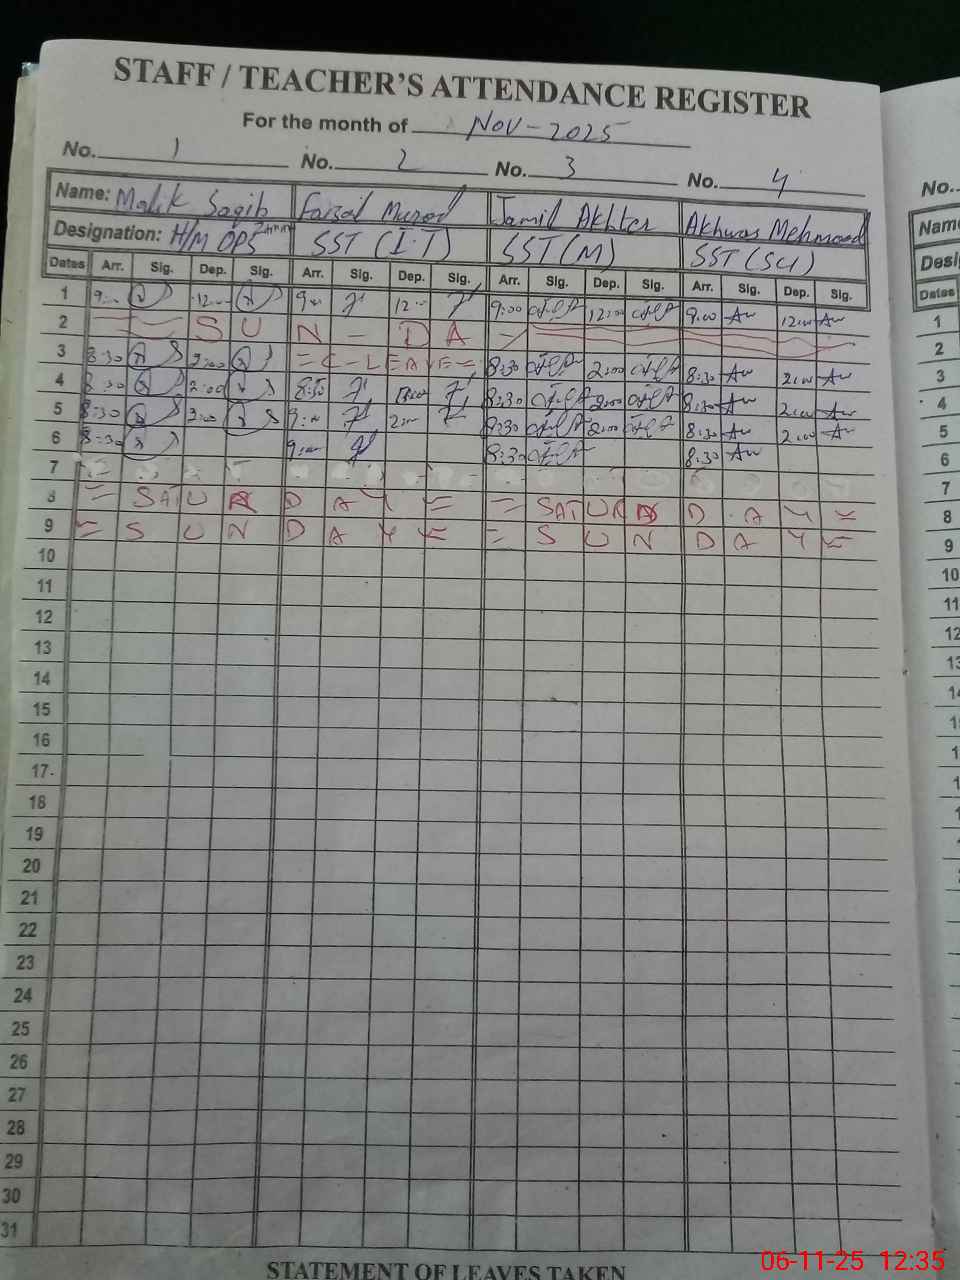 STAFF / TEACHER'S ATTENDANCE REGISTER
For the month of Nov-2025
No. 1 No. 2 No. 3 No. 4 No.
Name: Malik Saqib Faisal Murad Jamil Akhter Akhwas Mehmood Name
Designation: H/M OPS SST (I.T) SST (M) SST (SCI) Desi
Dates Arr. Sig. Dep. Sig. Arr. Sig. Dep. Sig. Arr. Sig. Dep. Sig. Arr. Sig. Dep. Sig. Dates
1 9:00 12:00 9:00 12:00 9:00 12:00 9:00 12:00 1
2 S U N - D A 2
3 8:30 2:00 = C - L E A V E = 8:30 2:00 8:30 2:00 3
4 8:30 2:00 8:30 8:30 2:00 8:30 2:00 4
5 8:30 2:00 9:00 2:00 8:30 2:00 8:30 2:00 5
6 8:30 9:00 8:30 8:30 6
7 7
8 = SATU R D A Y = = SATUR D A Y = 8
9 = S U N D A Y = = S U N D A Y = 9
10 10
11 11
12 12
13 13
14 14
15
16
17
18
19
20
21
22
23
24
25
26
27
28
29
30
31
STATEMENT OF LEAVES TAKEN
06-11-25 12:35